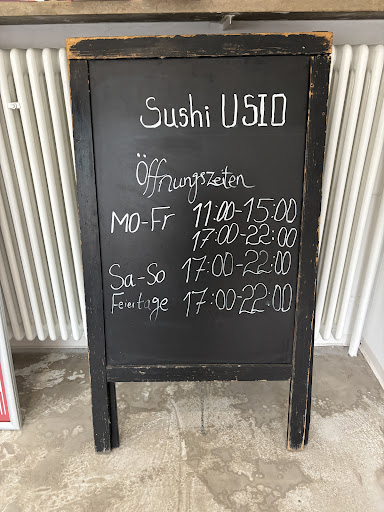 Sushi USIO
Öffnungszeiten
MO-Fr 11:00-15:00
17:00-22:00
Sa-So 17:00-22:00
Feiertage 17:00-22:00